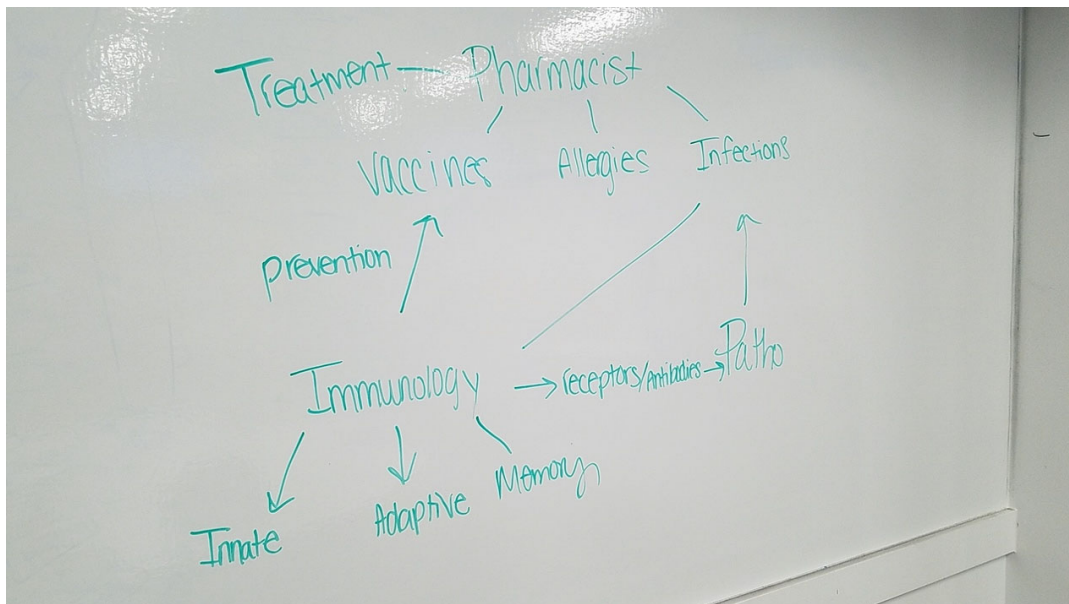 Treatment — Pharmacist
Vaccines Allergies Infections
Prevention
Immunology → receptors/Antibodies → Patho
Innate Adaptive Memory